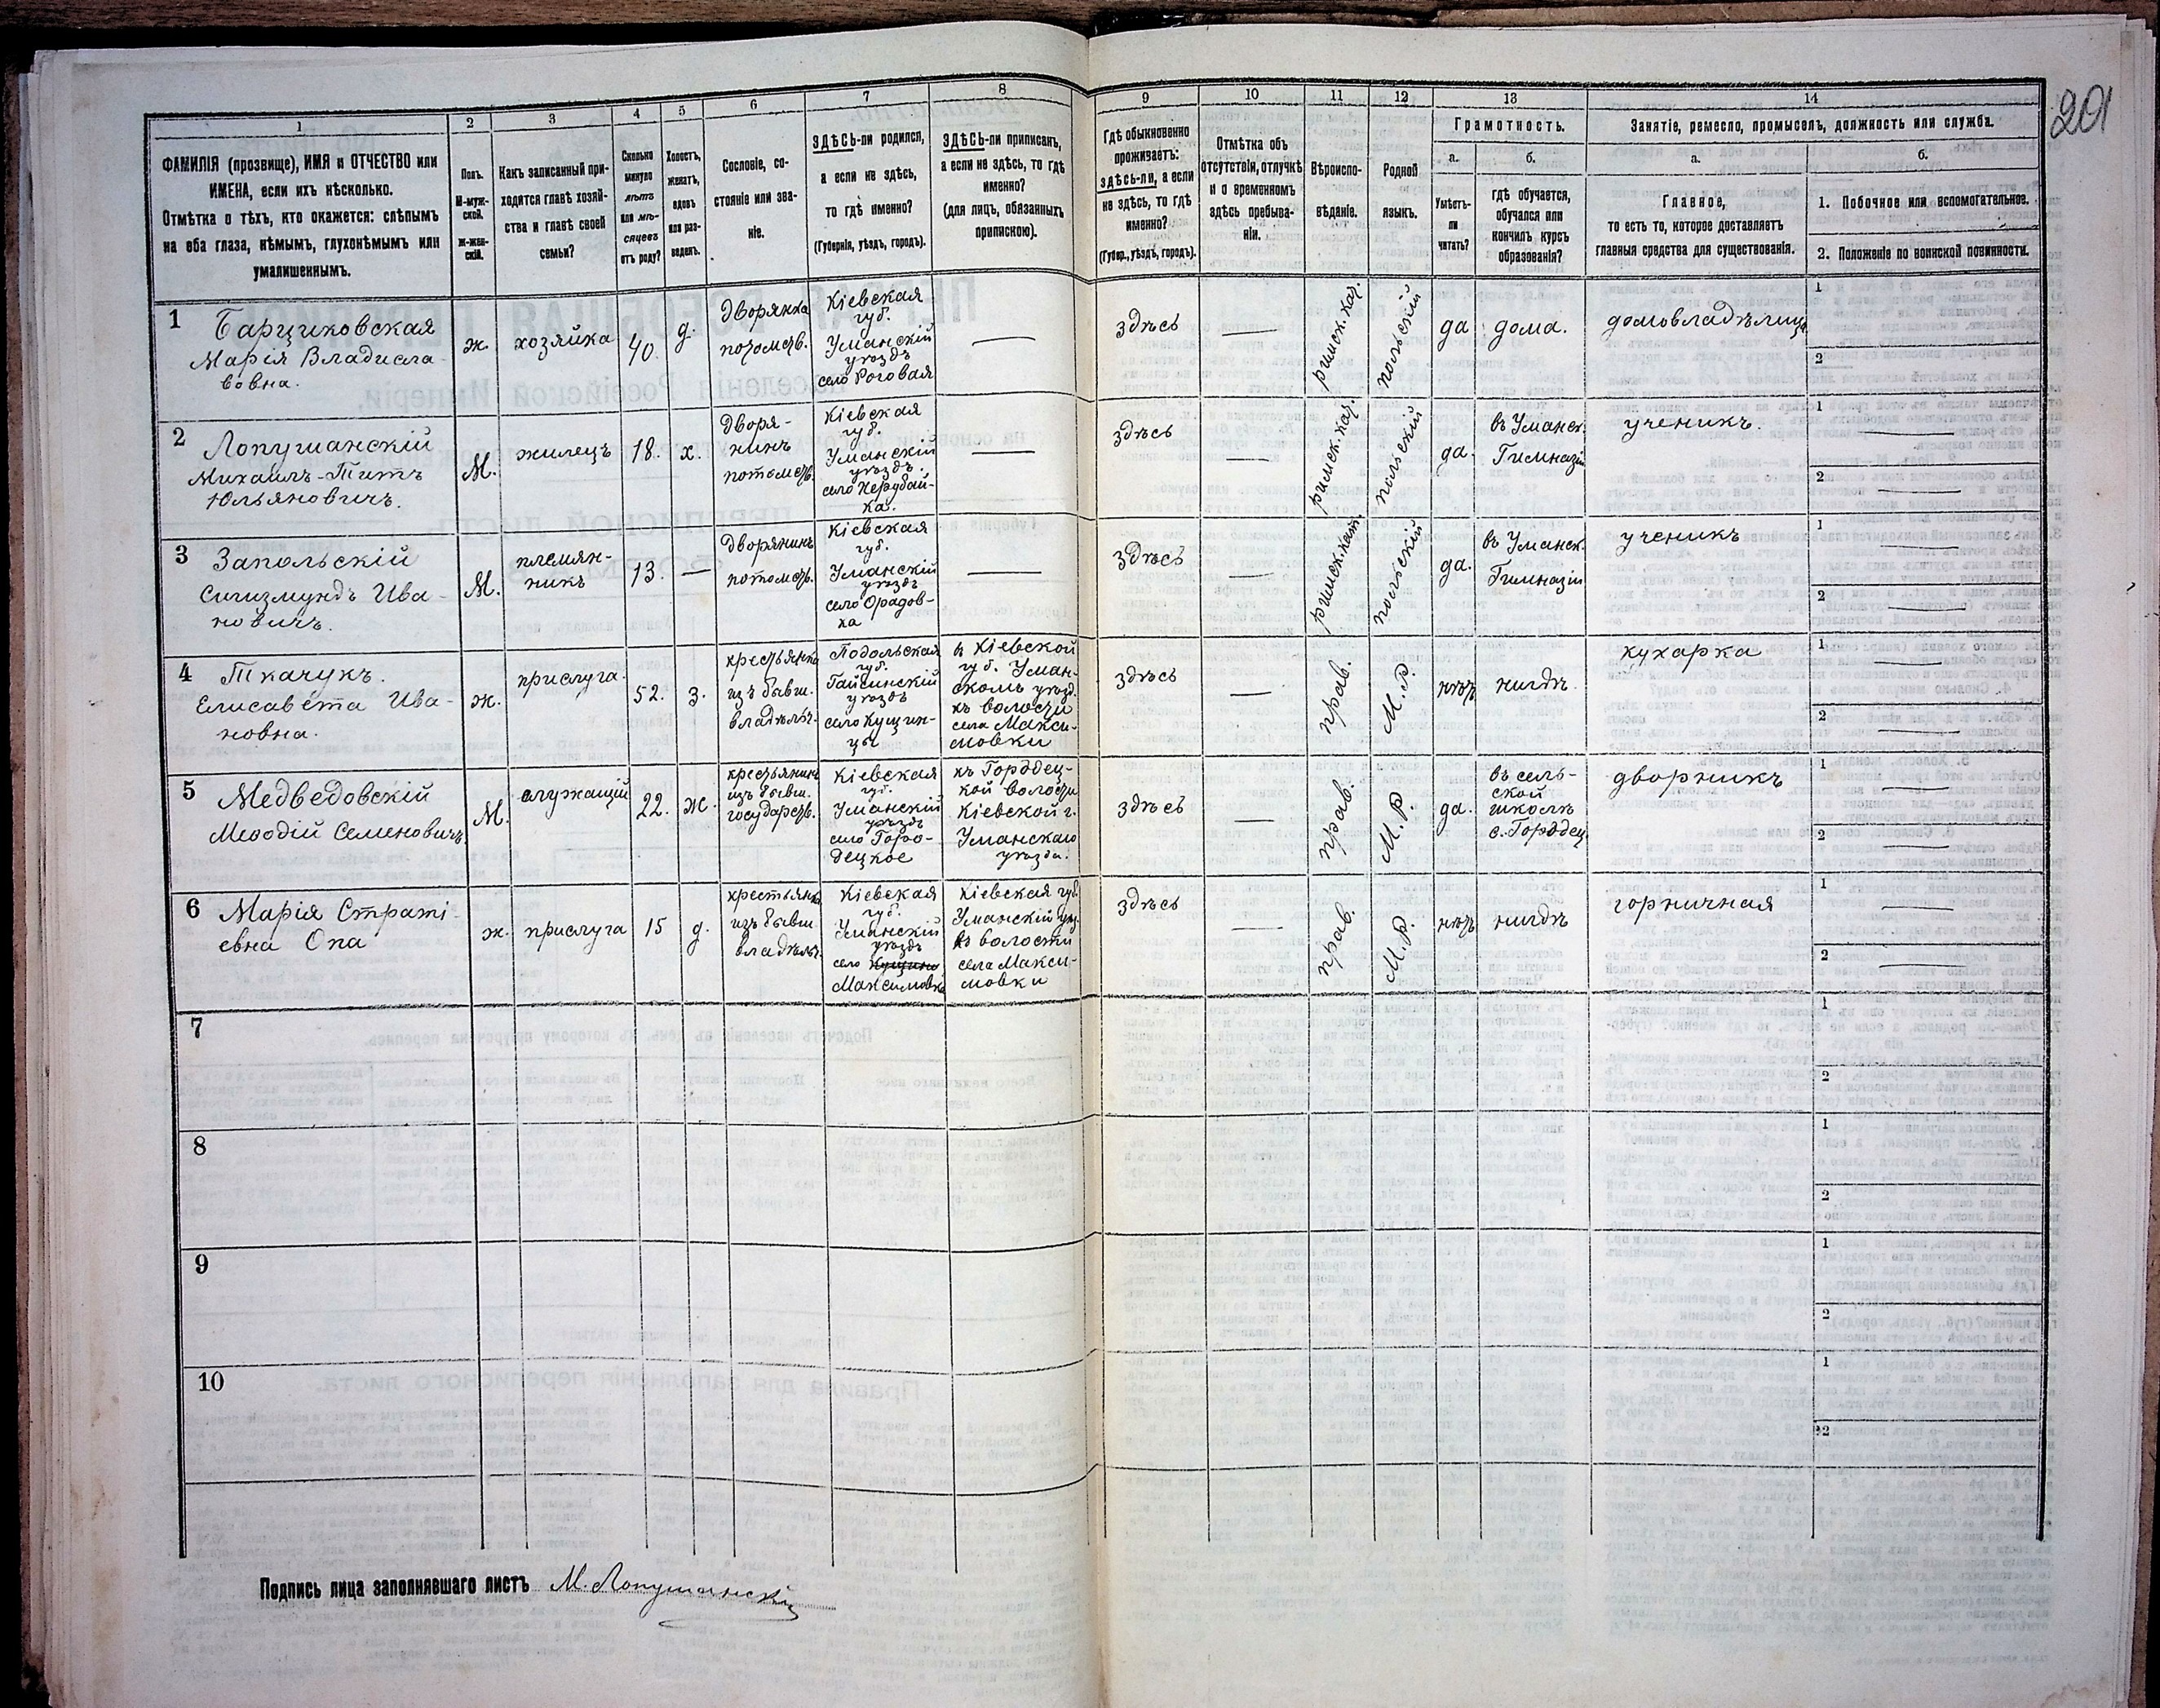 201
1
2
3
4
5
6
7
8
9
10
11
12
13
14
ФАМИЛІЯ (прозвище), ИМЯ и ОТЧЕСТВО или
ИМЕНА, если ихъ нѣсколько.
Отмѣтка о тѣхъ, кто окажется: слѣпымъ
на оба глаза, нѣмымъ, глухонѣмымъ или
умалишеннымъ.
Полъ.
М-муж-
ской.
Ж-жен-
скій.
Какъ записанный при-
ходится главѣ хозяй-
ства и главѣ своей
семьи?
Сколько
минуло
лѣтъ
или мѣ-
сяцевъ
отъ роду?
Холостъ,
женатъ,
вдовъ
или раз-
веденъ.
Сословіе, со-
стояніе или зва-
ніе.
ЗДѢСЬ-ли родился,
а если не здѣсь,
то гдѣ именно?
(Губернія, уѣздъ, городъ).
ЗДѢСЬ-ли приписанъ,
а если не здѣсь, то гдѣ
именно?
(для лицъ, обязанныхъ
припискою).
Гдѣ обыкновенно
проживаетъ:
здѣсь-ли, а если
не здѣсь, то гдѣ
именно?
(Губер., уѣздъ, городъ).
Отмѣтка объ
отсутствіи, отлучкѣ
и о временномъ
здѣсь пребыва-
ніи.
Вѣроиспо-
вѣданіе.
Родной
языкъ.
Грамотность.
а.
б.
Умѣетъ-
ли
читать?
гдѣ обучается,
обучался или
кончилъ курсъ
образованія?
Занятіе, ремесло, промыселъ, должность или служба.
а.
б.
Главное,
то есть то, которое доставляетъ
главныя средства для существованія.
1. Побочное или вспомогательное.
2. Положеніе по воинской повинности.
1
Барциковская
Марія Владисла
вовна.
ж.
хозяйка
40.
д.
дворянка
потомств.
Кіевская
губ.
Уманскій
уѣздъ
село Роговая
—
здѣсь
—
римск. кат.
польскій
да
дома.
домовладѣлица
1
2
2
Лопушанскій
Михаилъ-Титъ
Юльяновичъ.
М.
жилецъ
18.
х.
дворя-
нинъ
потомств.
Кіевская
губ.
Уманскій
уѣздъ.
село Нерубай-
ка.
—
здѣсь
—
римск. кат.
польскій
да.
въ Уманск.
Гимназіи
ученикъ.
1 —
2 —
3
Запольскій
Сигизмундъ Ива-
новичъ.
М.
племян-
никъ
13.
—
дворянинъ
потомств.
Кіевская
губ.
Уманскій
уѣздъ
село Орадов-
ка
—
здѣсь
—
римск. кат.
польскій
да.
въ Уманск.
Гимназіи
ученикъ
1 —
2 —
4
Ткачукъ.
Елисавета Ива-
новна.
ж.
прислуга
52.
з.
крестьянка
изъ бывш.
владѣльч.
Подольская
губ.
Гайсинскій
уѣздъ
село Кущин-
цы
в Кіевской
губ. Уман-
скомъ уѣзд.
къ волости
села Макси-
мовки
здѣсь
—
прав.
М. Р.
нѣтъ
нигдѣ
кухарка
1 —
2 —
5
Медведовскій
Меѳодій Семеновичъ
М.
служащій
22.
ж.
крестьянинъ
изъ бывш.
государств.
Кіевская
губ.
Уманскій
уѣздъ
село Горо-
децкое
къ Городец-
кой волости
Кіевской г.
Уманскаго
уѣзда.
здѣсь
—
прав.
М. Р.
да.
въ сель-
ской
школѣ
с. Городец.
дворникъ
1
2 —
6
Марія Страті-
евна Опа
ж.
прислуга
15
д.
крестьянка
изъ бывш.
владѣльч.
Кіевская
губ.
Уманскій
уѣздъ
село Кущино
Максимовка
Кіевская губ.
Уманскій уѣз.
въ волости
села Макси-
мовки
здѣсь
—
прав.
М. Р.
нѣтъ
нигдѣ
горничная
1 —
2 —
7
1
2
8
1
2
9
1
2
10
1
2
Подпись лица заполнявшаго листъ М. Лопушанскій